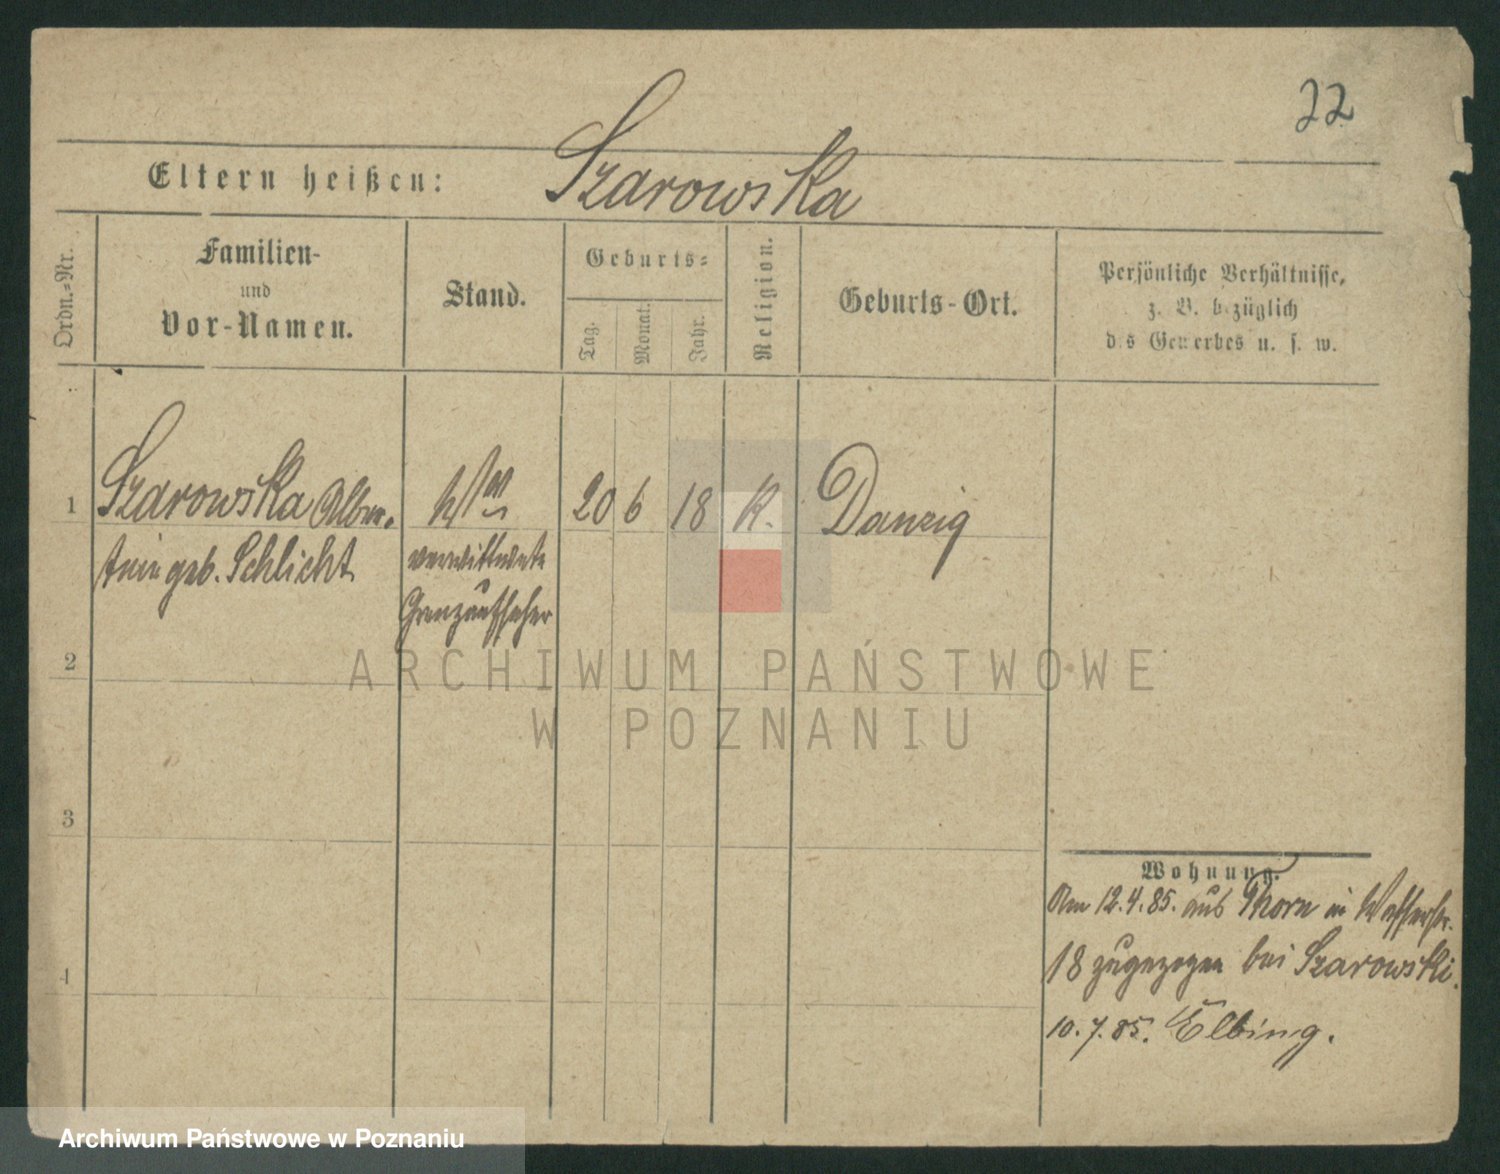 22
Eltern heißen: Szarowska
Ordn.-Nr.
Familien-
und
Vor-Namen.
Stand.
Geburts-
Tag.
Monat.
Jahr.
Religion.
Geburts-Ort.
Persönliche Verhältnisse,
z. B. bezüglich
des Gewerbes u. s. w.
1 Szarowska Alber- 20 6 18 K. Danzig
tine geb. Schlicht
verwittwete
Grenzaufseher
2
3
4
Wohnung.
Am 12.4.85. aus Thorn in Wasserstr.
18 zugezogen bei Szarowski.
10.7.85. Elbing.
ARCHIWUM PAŃSTWOWE
W POZNANIU
Archiwum Państwowe w Poznaniu